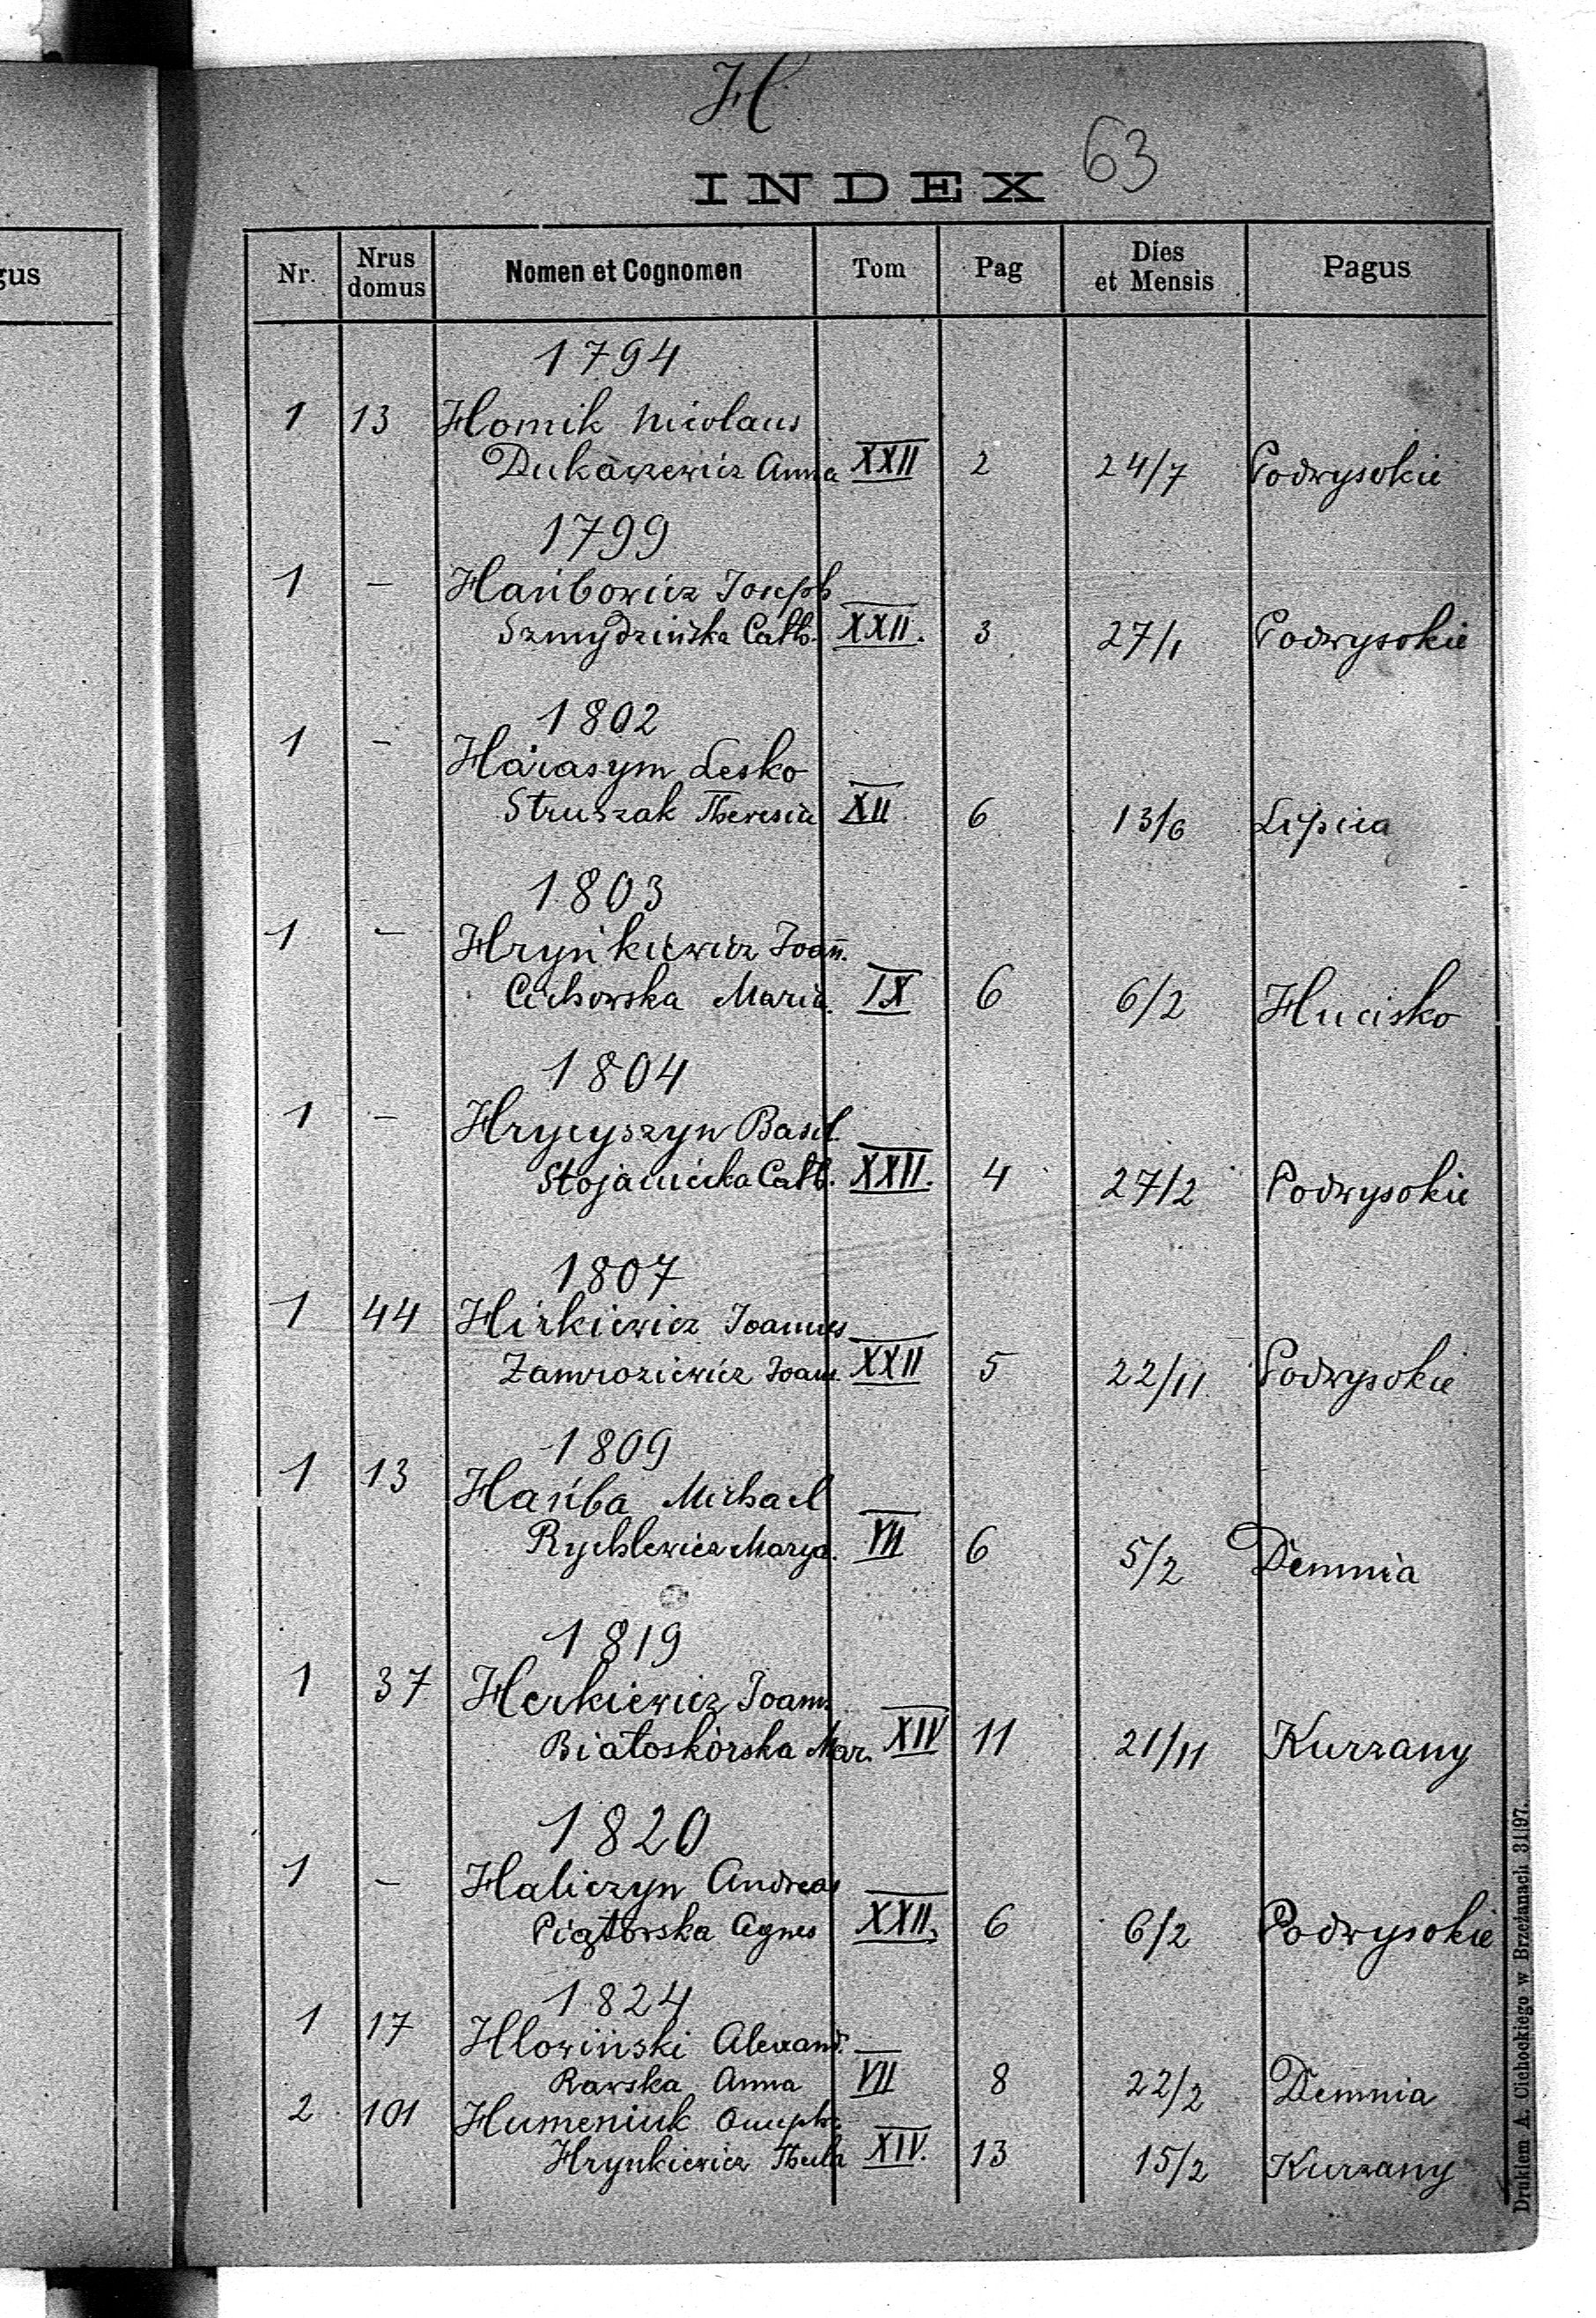 H
63
INDEX
gus
Nr. Nrus domus Nomen et Cognomen Tom Pag Dies et Mensis Pagus
1794
1 13 Homik Nicolaus
Dukaczewicz Anna XXII 2 24/7 Podwysokie
1799
1 – Hańbowicz Joseph
Szmydzińska Cath. XXII. 3 27/1 Podwysokie
1802
1 – Harasym Lesko
Struszak Theresia XII 6 13/6 Lipica
1803
1 – Hryńkiewicz Joan̄.
Cichowska Maria. IX 6 6/2 Hucisko
1804
1 – Hrycyszyn Basil.
Cath. XXII. 4 27/2 Podwysokie
1807
1 44 Hirkiewicz Joannes
Zamroziewicz Joan. XXII 5 22/11 Podwysokie
1809
1 13 Hańba Michael
Rychlewicz Marya. VII 6 5/2 Demnia
1819
1 37 Herkiewicz Joann.
Białoskórska Mar. XIV 11 21/11 Kurzany
1820
1 – Haliczyn Andreas
Piątowska Agnes XXII. 6 6/2 Podwysokie
1824
1 17 Hłowiński Alexand.
Rawska Anna VII 8 22/2 Demnia
2 101 Humeniuk Onuphr.
Hrynkiewicz Thecla XIV. 13 15/2 Kurzany
Drukiem A. Cichockiego w Brzeżanach 31|97.